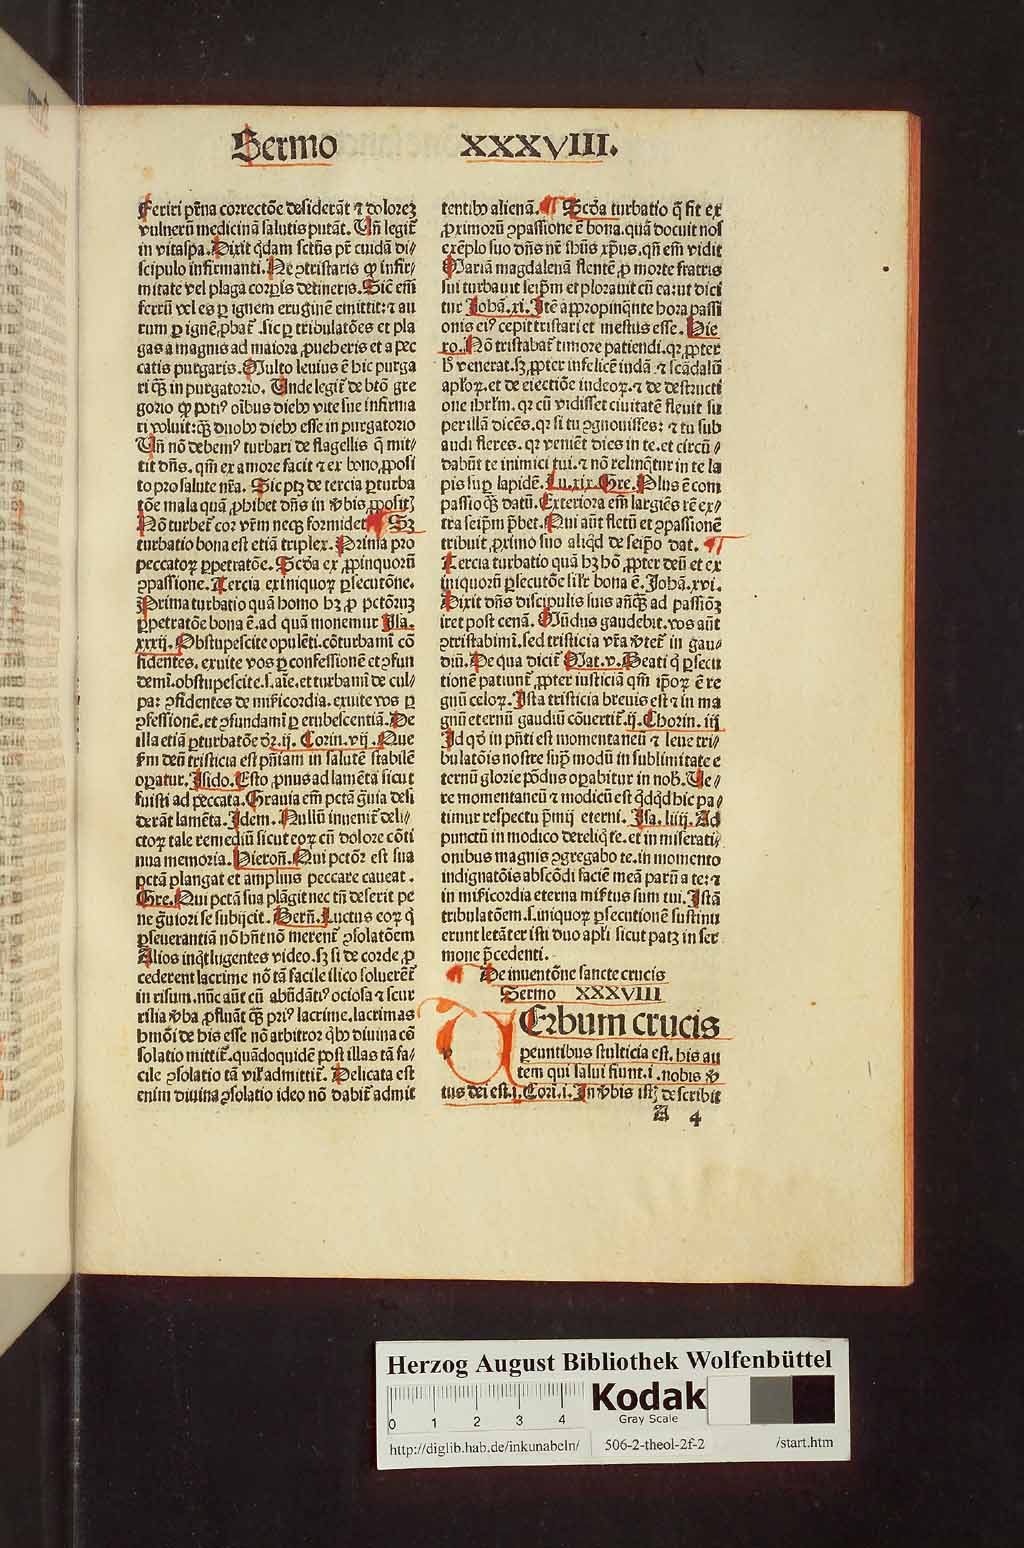 Sermo XXXVIII.
Feriri pr̃na correctõe desiderãt ⁊ dolorez
vulnerũ medicinã salutis putãt. Uñ legit̃
in vitaspa. Dixit q̃dam sctũs pr̃ cuidã di⸗
scipulo infirmanti. Ne ꝯtristaris ꝙ infir⸗
mitate vel plaga corpis detineris. Sic em̃
ferrũ vel es ꝑ ignem eruginẽ emittit: ⁊ au
rum ꝑ ignẽ ꝓbat̃. sic ꝑ tribulatões et pla
gas a magnis ad maiora ꝓueheris et a pec
catis purgaris. Multo leuius ẽ hic purga
ri q̃ꝫ in purgatorio. Unde legit̃ de btõ gre
gorio ꝙ potiꝰ oĩbus diebꝰ vite sue infirma
ri voluit: q̃ꝫ duobꝰ diebꝰ esse in purgatorio
Uñ nõ debemꝰ turbari de flagellis q̃ mit⸗
tit dñs. qm̃ ex amore facit ⁊ ex bono ꝓposi
to pro salute nr̃a. Sic ptꝫ de tercia ꝑturba
tõe mala quã ꝓhibet dñs in v̾bis ꝓpositꝭ
Nõ turbet̃ cor vr̃m necqꝫ formidet ¶ Sꝫ
turbatio bona est etiã triplex. Prima pro
peccatoꝝ ꝑpetratõe. Scd̾a ex ꝓpinquorũ
ꝯpassione. Tercia ex iniquoꝝ ꝑsecutõne.
Prima turbatio quã homo hꝫ ꝓ pctõrũꝫ
ꝑpetratõe bona ẽ. ad quã monemur Isa.
xxxij. Obstupescite opulẽti. cõturbami cõ
fidentes. exuite vos ꝑ confessionẽ et ꝯfun
demĩ. obstupescite .s. aĩe. et turbamĩ de cul⸗
pa: ꝯfidentes de mĩcordia. exuite vos ꝑ
ꝯfessionẽ. et ꝯfundamĩ ꝑ erubescentiã. De
illa etiã ꝑturbatõe dr̃. ij. Corin. vij. Que
ẜm deũ tristicia est pñiam in salutẽ stabilẽ
oꝑatur. Isido. Esto ꝓnus ad lamẽta sicut
fuisti ad peccata. Grauia em̃ pctã g̃uia desi
derãt lamẽta. Idem. Nullũ inuenit̃ deli⸗
ctoꝝ tale remediũ sicut eoꝝ cũ dolore cõti
nua memoria. Hieroñ. Qui pctõr est sua
pctã plangat et amplius peccare caueat.
Gre. Qui pctã sua plãgit nec tñ deserit pe
ne g̃uiori se subijcit. Berñ. Luctus eoꝝ q̃
ꝑseuerantiã nõ hñt nõ merent̃ ꝯsolatõem
Alios inq̃t lugentes video. sꝫ si de corde ꝓ
cederent lacrime nõ tã facile ilico soluerẽt̃
in risum. nũc aũt cũ abũdãtiꝰ ociosa ⁊ scur
rilia v̾ba ꝓfluãt q̃ꝫ priꝰ lacrime. lacrimas
hmõi de his esse nõ arbitror q̃bꝰ diuina cõ
solatio mittit̃. quãdoquidẽ post illas tã fa⸗
cile ꝯsolatio tã vil̾ admittit̃. Delicata est
enim diuina ꝯsolatio ideo nõ dabit̃ admit
tentibꝰ alienã. ¶ Scd̾a turbatio q̃ fit ex
ꝓximorũ ꝯpassione ẽ bona. quã docuit nos
exẽplo suo dñs nr̃ ihũs xp̃us. qñ em̃ vidit
Mariã magdalenã flentẽ ꝓ morte fratris
sui turbauit seip̃m et plorauit cũ ea: ut dici
tur Johã. xi. Itẽ appropinq̃nte hora passi
onis eiꝰ cepit tristari et mestus esse. Hie
ro. Nõ tristabat̃ timore patiendi. qꝛ ꝓpter
hꝰ venerat. sꝫ ꝓpter infelicẽ iudã ⁊ scãdalũ
apl̾oꝝ. et de eiectiõe iudeoꝝ. ⁊ de destructi
one ihrl̾m. qꝛ cũ vidisset ciuitatẽ fleuit su
per illã dicẽs. qꝛ si tu ꝯgnouisses: ⁊ tu sub
audi fleres. qꝛ veniẽt dies in te. et circũ⸗
dabũt te inimici tui. ⁊ nõ relinq̃tur in te la
pis suꝑ lapidẽ. Lu. xix. Gre. Plus ẽ com
passio q̃ꝫ datũ. Exteriora em̃ largiẽs rẽ ex⸗
tra seip̃m p̃bet. Qui aũt fletũ et ꝯpassionẽ
tribuit ꝓximo suo aliq̃d de seip̃o dat. ¶
Tercia turbatio quã hꝫ hõ ꝓpter deũ et ex
iniquorũ ꝑsecutõe sil̾r bona ẽ. Johã. xvi.
Dixit dñs discipulis suis añq̃ꝫ ad passiõꝫ
iret post cenã. Mũdus gaudebit. vos aũt
ꝯtristabimĩ. sed tristicia vr̃a v̾tet̃ in gau⸗
diũ. De qua dicit̃ Mat. v. Beati q̃ ꝑsecu
tionẽ patiunt̃ ꝓpter iusticiã qm̃ ip̃oꝝ ẽ re
gnũ celoꝝ. Ista tristicia breuis est ⁊ in ma
gnũ eternũ gaudiũ cõuertit̃. ij. Chorin. iij
Id qd̾ in pñti est momentaneũ ⁊ leue tri⸗
bulatõis nostre sup̃ modũ in sublimitate e
ternũ glorie põdus oꝑabitur in nob̾. Ue⸗
re momentaneũ ⁊ modicũ est q̃dq̃d hic pa⸗
timur respectu p̃mij eterni. Isa. liiij. Ad
punctũ in modico dereliq̃ te. et in miserati⸗
onibus magnis ꝯgregabo te. in momento
indignatõis abscõdi faciẽ meã parũ a te: ⁊
in mĩcordia eterna mĩtus sum tui. Istã
tribulatõem .s. iniquoꝝ ꝑsecutionẽ sustinu
erunt letãter isti duo apl̾i sicut patꝫ in ser
mone p̃cedenti.
¶ De inuentõne sancte crucis
Sermo XXXVIII
UErbum crucis
pereuntibus stulticia est. his au
tem qui salui fiunt .i. nobis v̾
tus dei est. i. Cori. i. In v̾bis istꝭ describit
A 4
Herzog August Bibliothek Wolfenbüttel
0 1 2 3 4
Kodak
Gray Scale
http://diglib.hab.de/inkunabeln/ 506-2-theol-2f-2 /start.htm